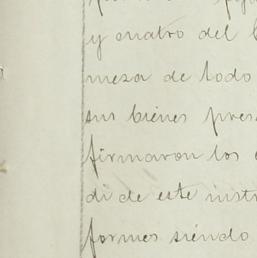 y cuatro del
meza de todo
sus bienes pres
firmaron los
di de este instr
formes siendo